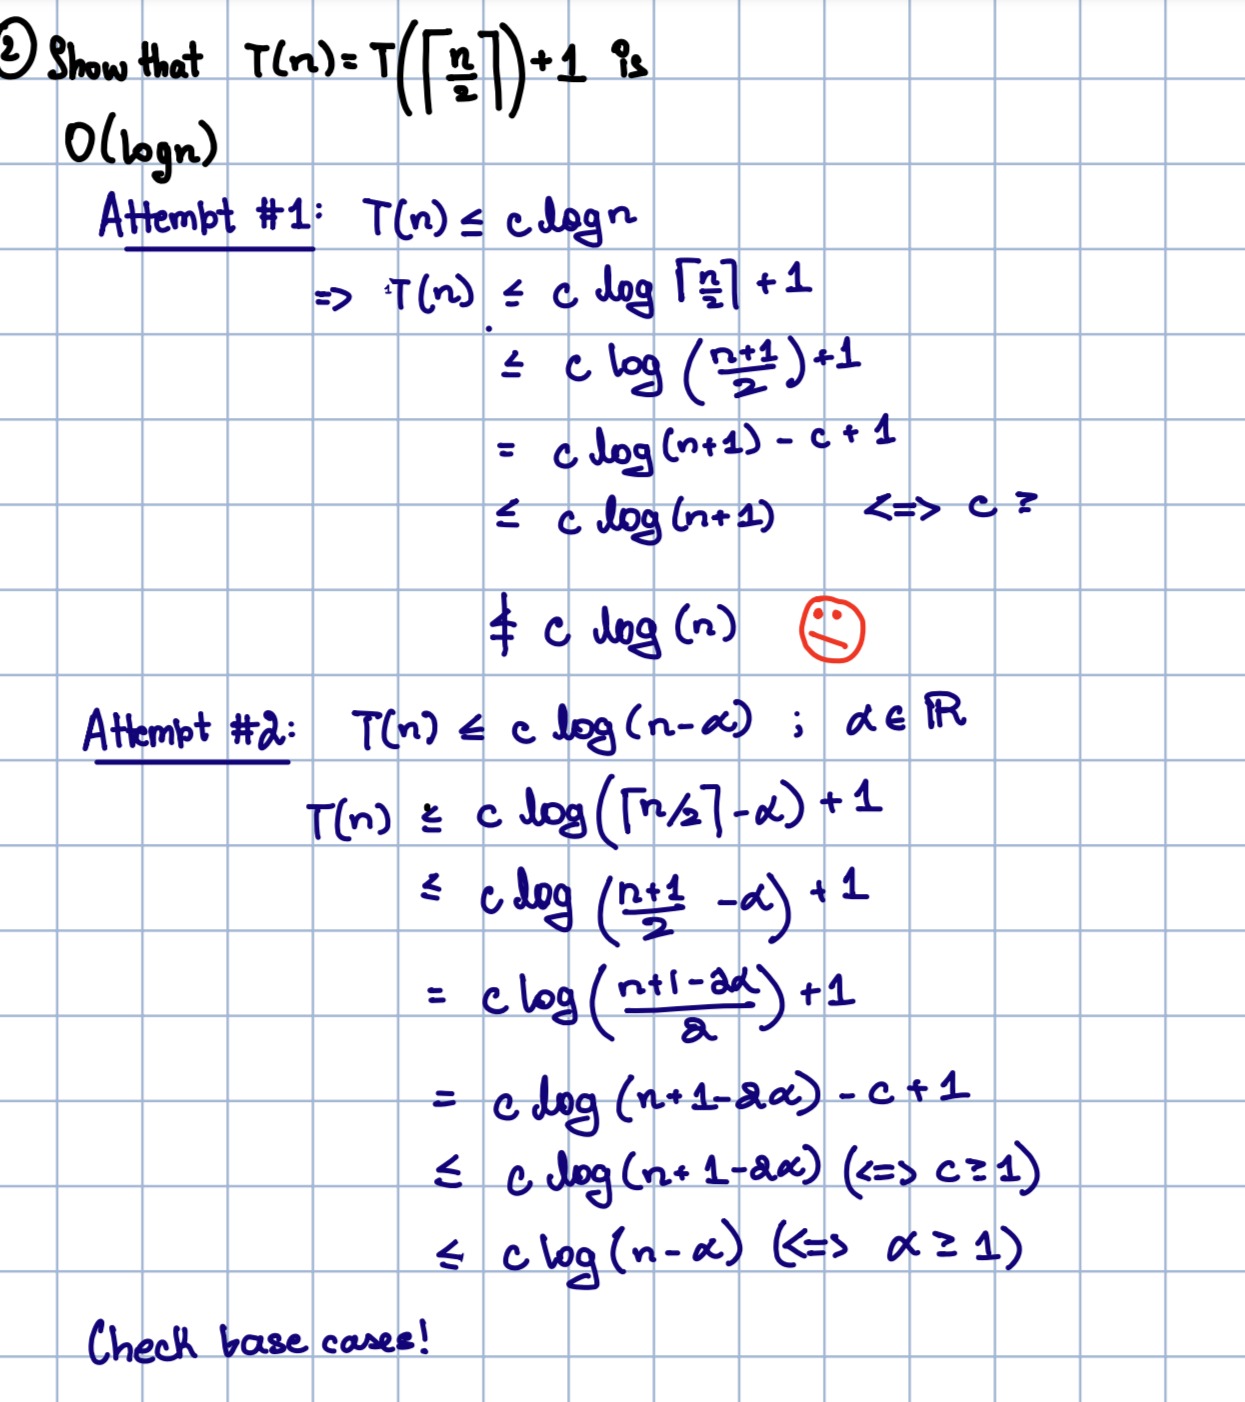 ② Show that T(n) = T(⌈n/2⌉) + 1 is
O(logn)
Attempt #1: T(n) ≤ c logn
=> T(n) ≤ c log ⌈n/2⌉ + 1
≤ c log ((n+1)/2) + 1
= c log (n+1) - c + 1
≤ c log (n+1) <=> c ?
≰ c log (n)
Attempt #2: T(n) ≤ c log (n-α) ; α ∈ ℝ
T(n) ≤ c log (⌈n/2⌉ - α) + 1
≤ c log ((n+1)/2 - α) + 1
= c log ((n+1-2α)/2) + 1
= c log (n+1-2α) - c + 1
≤ c log (n+1-2α) (<=> c ≥ 1)
≤ c log (n-α) (<=> α ≥ 1)
Check base cases!